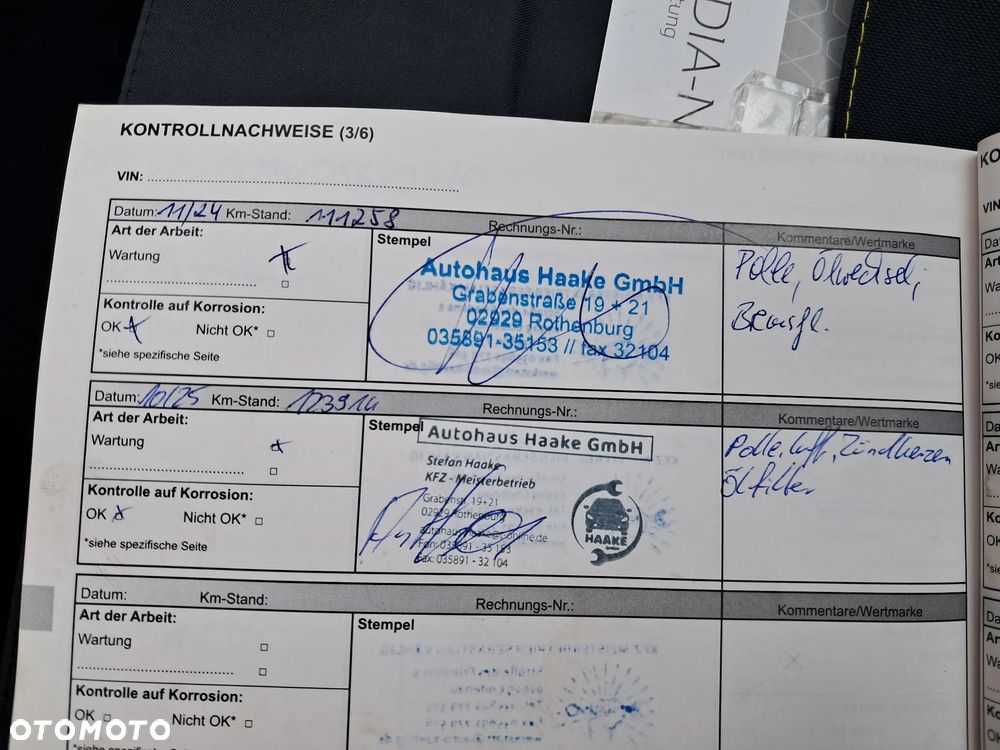 DIA-N
tung
KONTROLLNACHWEISE (3/6)
VIN:
Datum: 11/24 Km-Stand: 111258 Rechnungs-Nr.: Kommentare/Wertmarke
Art der Arbeit:
Wartung
Kontrolle auf Korrosion:
OK Nicht OK*
*siehe spezifische Seite
Stempel
Autohaus Haake GmbH
Grabenstraße 19 + 21
02929 Rothenburg
035891-35153 // fax 32104
Polle, Ölwechsel,
Datum: 10/25 Km-Stand: Rechnungs-Nr.: Kommentare/Wertmarke
Art der Arbeit:
Wartung
Kontrolle auf Korrosion:
OK Nicht OK*
*siehe spezifische Seite
Stempel
Autohaus Haake GmbH
Stefan Haake
KFZ - Meisterbetrieb
Grabenstr. 19+21
02929 Rothenburg
Fon: 035891 - 35 153
Fax: 035891 - 32 104
HAAKE
Polle, Luft, Zündkerzen
Ölfilter
Datum: Km-Stand: Rechnungs-Nr.: Kommentare/Wertmarke
Art der Arbeit:
Wartung
Kontrolle auf Korrosion:
OK Nicht OK*
*siehe spezifische Seite
Stempel
KO
VIN
OTOMOTO